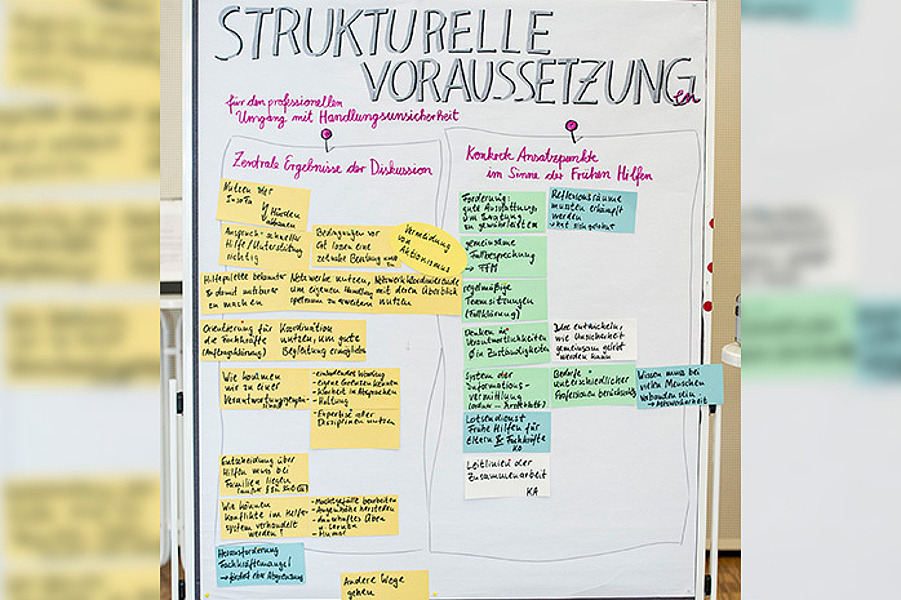 STRUKTURELLE
VORAUSSETZUNGen
für den professionellen
Umgang mit Handlungsunsicherheit
Zentrale Ergebnisse der Diskussion
Nutzen der
InsoFa
Hürden
Anspruch - schneller
Hilfe/Unterstützung
richtig
Bedingungen vor
Ort lassen eine
zeitnahe Beratung zu
Vermeidung
von
Aktionismus
Hilfepalette bekannter
& damit nutzbarer
zu machen
Netzwerke nutzen,
um eigenen Handlungs-
spielraum zu erweitern
Netzwerkkoordinierende
mit deren Überblick
nutzen
Orientierung für
die Fachkräfte
(Auftragsklärung)
Koordination
nutzen, um gute
Begleitung ermöglichen
Wie kommen
wir zu einer
Verantwortungsgemein-
- einladendes Wording
- eigene Grenzen kennen
- Klarheit in Absprachen
- Haltung
- Expertise aller
Disziplinen nutzen
Entscheidung über
Hilfen muss bei
Familien liegen
Wie können
Konflikte im Helfer-
system verhandelt
werden?
- Machtgefälle bearbeiten
- Augenhöhe herstellen
- dauerhaftes Üben
u. Lernen
- Humor
Herausforderung
Fachkräftemangel
→ fördert eher Abgrenzung
Andere Wege
gehen
Konkrete Ansatzpunkte
im Sinne der Frühen Hilfen
Forderung:
gute Ausstattung,
um Beratung
zu gewährleisten
Reflexionsräume
müssten erkämpft
werden
gemeinsame
Fallbesprechung
regelmäßige
Teamsitzungen
(Fallklärung)
Denken in
Verantwortlichkeiten
Ø in Zuständigkeiten
Idee entwickeln,
wie Unsicherheit
gemeinsam gelöst
werden kann
System der
Informations-
vermittlung
Bedarfe
unterschiedlicher
Professionen berücksichtigen
Wissen muss bei
vielen Menschen
vorhanden sein
Lotsendienst
Frühe Hilfen für
Eltern & Fachkräfte
KO
Leitlinien der
Zusammenarbeit
KA